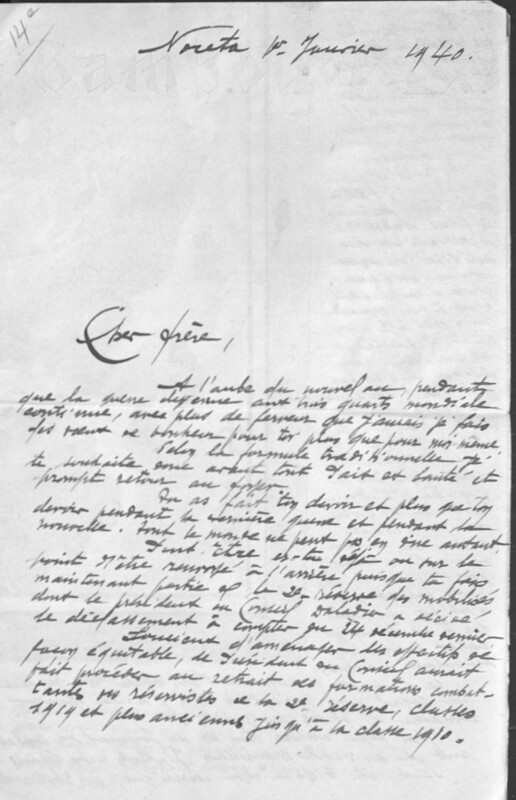 14e
Noceta 1er Janvier 1940.
Cher frère,
A l'aube du nouvel an, pendant
que la guerre aux trois quarts mondiale
continue, avec plus de ferveur que jamais je fais
des vœux de bonheur pour toi plus que pour moi-même
Selon la formule traditionnelle je
te souhaite donc avant tout Paix et Santé et
prompt retour au foyer.
Tu as fait ton devoir et plus que ton
devoir pendant la dernière guerre et pendant la
nouvelle. Tout le monde ne peut pas en dire autant.
Peut-être es-tu déjà ou sur le
point d'être renvoyé à l'arrière, puisque tu fais
maintenant partie de la 2e réserve des mobilisés
dont le président du Conseil Daladier a décidé
le déclassement à compter du 24 décembre dernier
Soucieux d'aménager des effectifs de
façon équitable, le Président du Conseil aurait
fait procéder au retrait des formations combat-
tantes des réservistes de la 2e réserve, classes
1919 et plus anciennes jusqu'à la classe 1910.